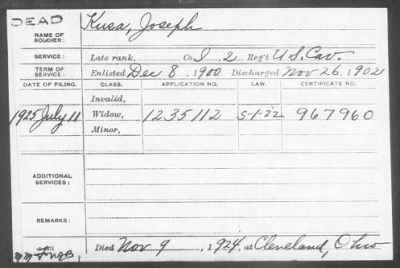 DEAD
NAME OF SOLDIER: Kusa, Joseph
SERVICE: Late rank, Co. I 2 Reg't U S. Cav.
TERM OF SERVICE: Enlisted Dec 8, 1900 Discharged Nov 26, 1902
DATE OF FILING. CLASS. APPLICATION NO. LAW. CERTIFICATE NO.
Invalid,
1925 July 11 Widow, 1235112 5-1-22 967960
Minor,
ADDITIONAL SERVICES:
REMARKS:
Died Nov 9, 1924, at Cleveland, Ohio